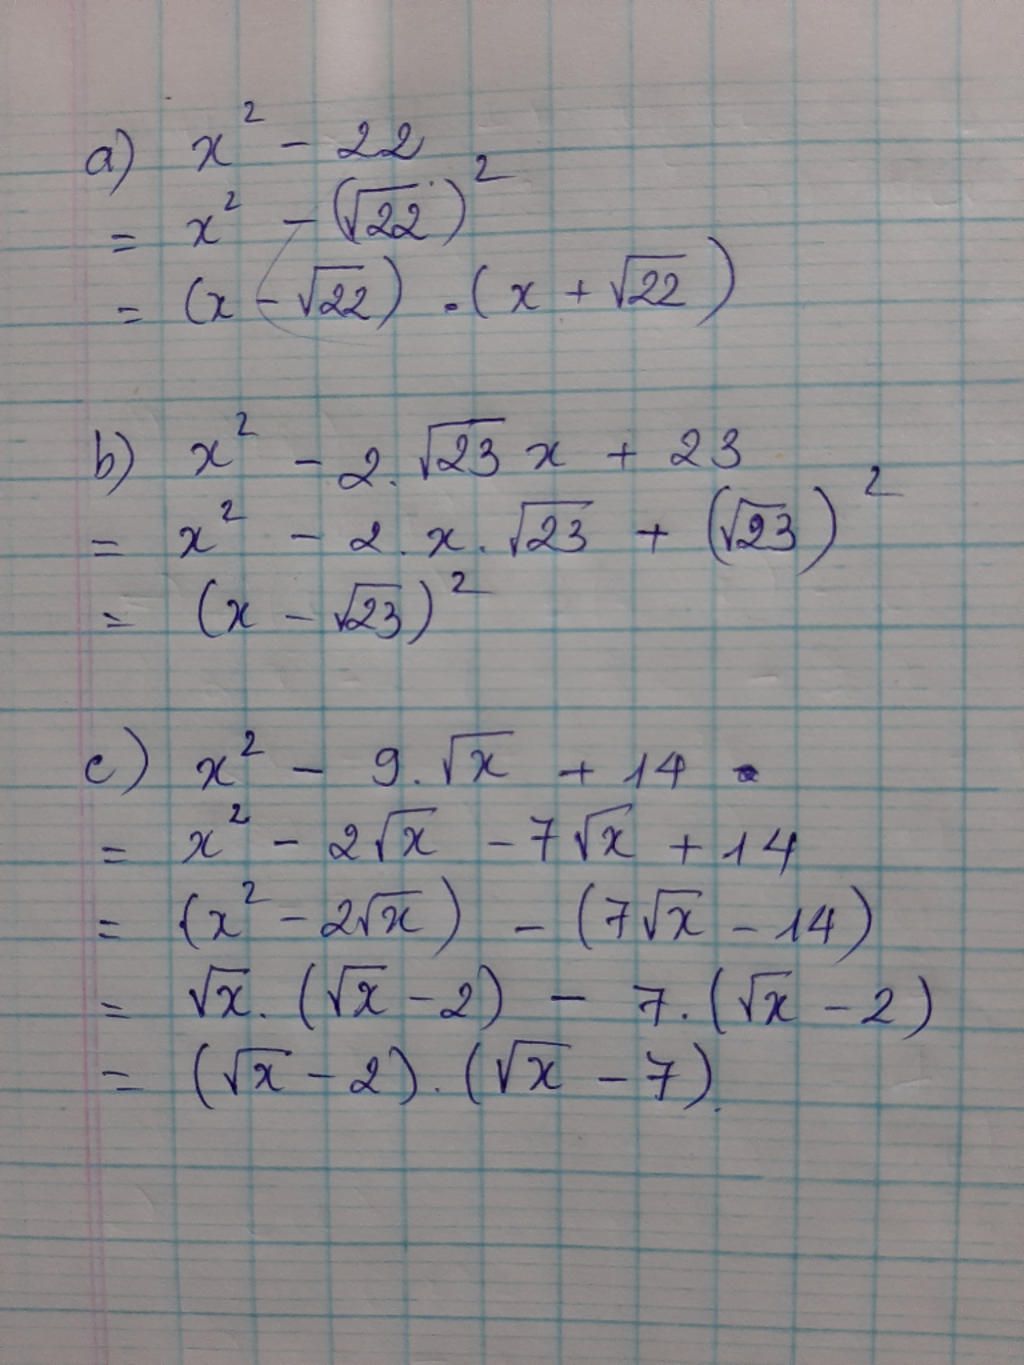 a) x² - 22
= x² - (√22)²
= (x - √22) . (x + √22)
b) x² - 2.√23 x + 23
= x² - 2.x.√23 + (√23)²
= (x - √23)²
c) x² - 9.√x + 14
= x² - 2√x - 7√x + 14
= (x² - 2√x) - (7√x - 14)
= √x.(√x - 2) - 7.(√x - 2)
= (√x - 2).(√x - 7).